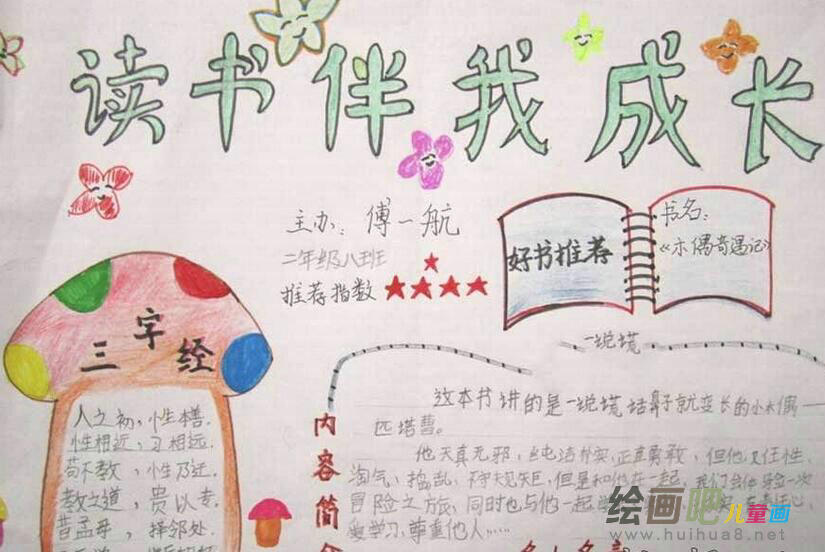 读书伴我成长
主办：傅一航
二年级八班
推荐指数
好书推荐
书名：
《木偶奇遇记》
三字经
人之初，性本善.
性相近，习相远.
苟不教，性乃迁.
教之道，贵以专.
昔孟母，择邻处.
内容简
这本书讲的是一说谎话鼻子就变长的小木偶——
匹塔曹。
一说谎
他天真无邪，纯洁朴实，正直勇敢，但他又任性、
淘气、捣乱、不守规矩，但是和他在一起，我们会体验一次
冒险之旅，同时也与他一起学
爱学习、尊重他人……
绘画吧儿童画
www.huihua8.com